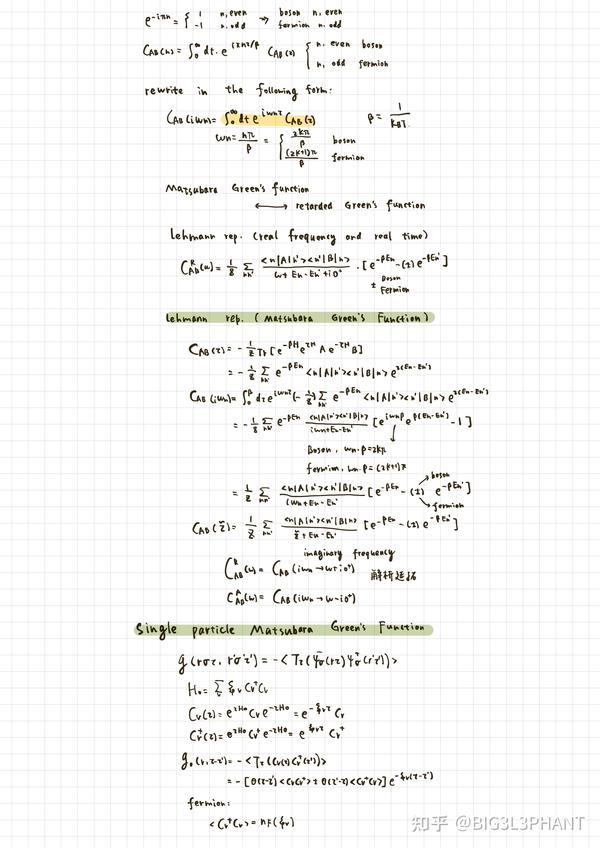 e^{-iπn} = { 1 n, even → boson n, even
-1 n, odd fermion n, odd
C_{AB}(n) = ∫_0^∞ dτ. e^{iπnτ/β} C_{AB}(τ) { n, even boson
n, odd fermion
rewrite in the following form:
C_{AB}(iωn) = ∫_0^∞ dτ e^{iωnτ} C_{AB}(τ) β = 1/(k_B T.)
ωn = nπ/β = { 2kπ/β boson
(2k+1)π/β fermion
Matsubara Green's function
⟷ retarded Green's function
Lehmann rep. (real frequency and real time)
C^R_{AB}(ω) = 1/Z Σ_{nn'} <n|A|n'><n'|B|n> / (ω+En-En'+i0^+) · [e^{-βEn} - (±) e^{-βEn'}]
± Boson
Fermion
Lehmann rep. (Matsubara Green's Function)
C_{AB}(τ) = - 1/Z Tr [e^{-βH} e^{τH} A e^{-τH} B]
= - 1/Z Σ_{nn'} e^{-βEn} <n|A|n'><n'|B|n> e^{τ(En-En')}
C_{AB}(iωn) = ∫_0^β dτ e^{iωnτ} (- 1/Z) Σ_{nn'} e^{-βEn} <n|A|n'><n'|B|n> e^{τ(En-En')}
= - 1/Z Σ_{nn'} e^{-βEn} <n|A|n'><n'|B|n> / (iωn+En-En') [e^{iωnβ} e^{β(En-En')} - 1]
Boson, ωn·β = 2kπ
fermion, ωn·β = (2k+1)π
= 1/Z Σ_{nn'} <n|A|n'><n'|B|n> / (iωn+En-En') [e^{-βEn} - (±) e^{-βEn'}]
boson
fermion
C_{AB}(z̃) = 1/Z Σ_{nn'} <n|A|n'><n'|B|n> / (z̃+En-En') [e^{-βEn} - (±) e^{-βEn'}]
imaginary frequency
C^R_{AB}(ω) = C_{AB}(iωn → ω+i0^+) 解析延拓
C^A_{AB}(ω) = C_{AB}(iωn → ω-i0^+)
Single particle Matsubara Green's Function
g(rστ, r'σ'τ') = -<Tτ(ψσ(rτ)ψσ^†(r'τ'))>
H_0 = Σ_ν ξ_ν Cν^†Cν
Cν(τ) = e^{τH0} Cν e^{-τH0} = e^{-ξντ} Cν
Cν^†(τ) = e^{τH0} Cν^† e^{-τH0} = e^{ξντ} Cν^†
g_0(ν, τ-τ') = -<Tτ(Cν(τ)Cν^†(τ'))>
= -[θ(τ-τ')<CνCν^†> ± θ(τ'-τ)<Cν^†Cν>] e^{-ξν(τ-τ')}
fermion:
<Cν^†Cν> = nF(ξν)
知乎 @BIG3L3PHANT